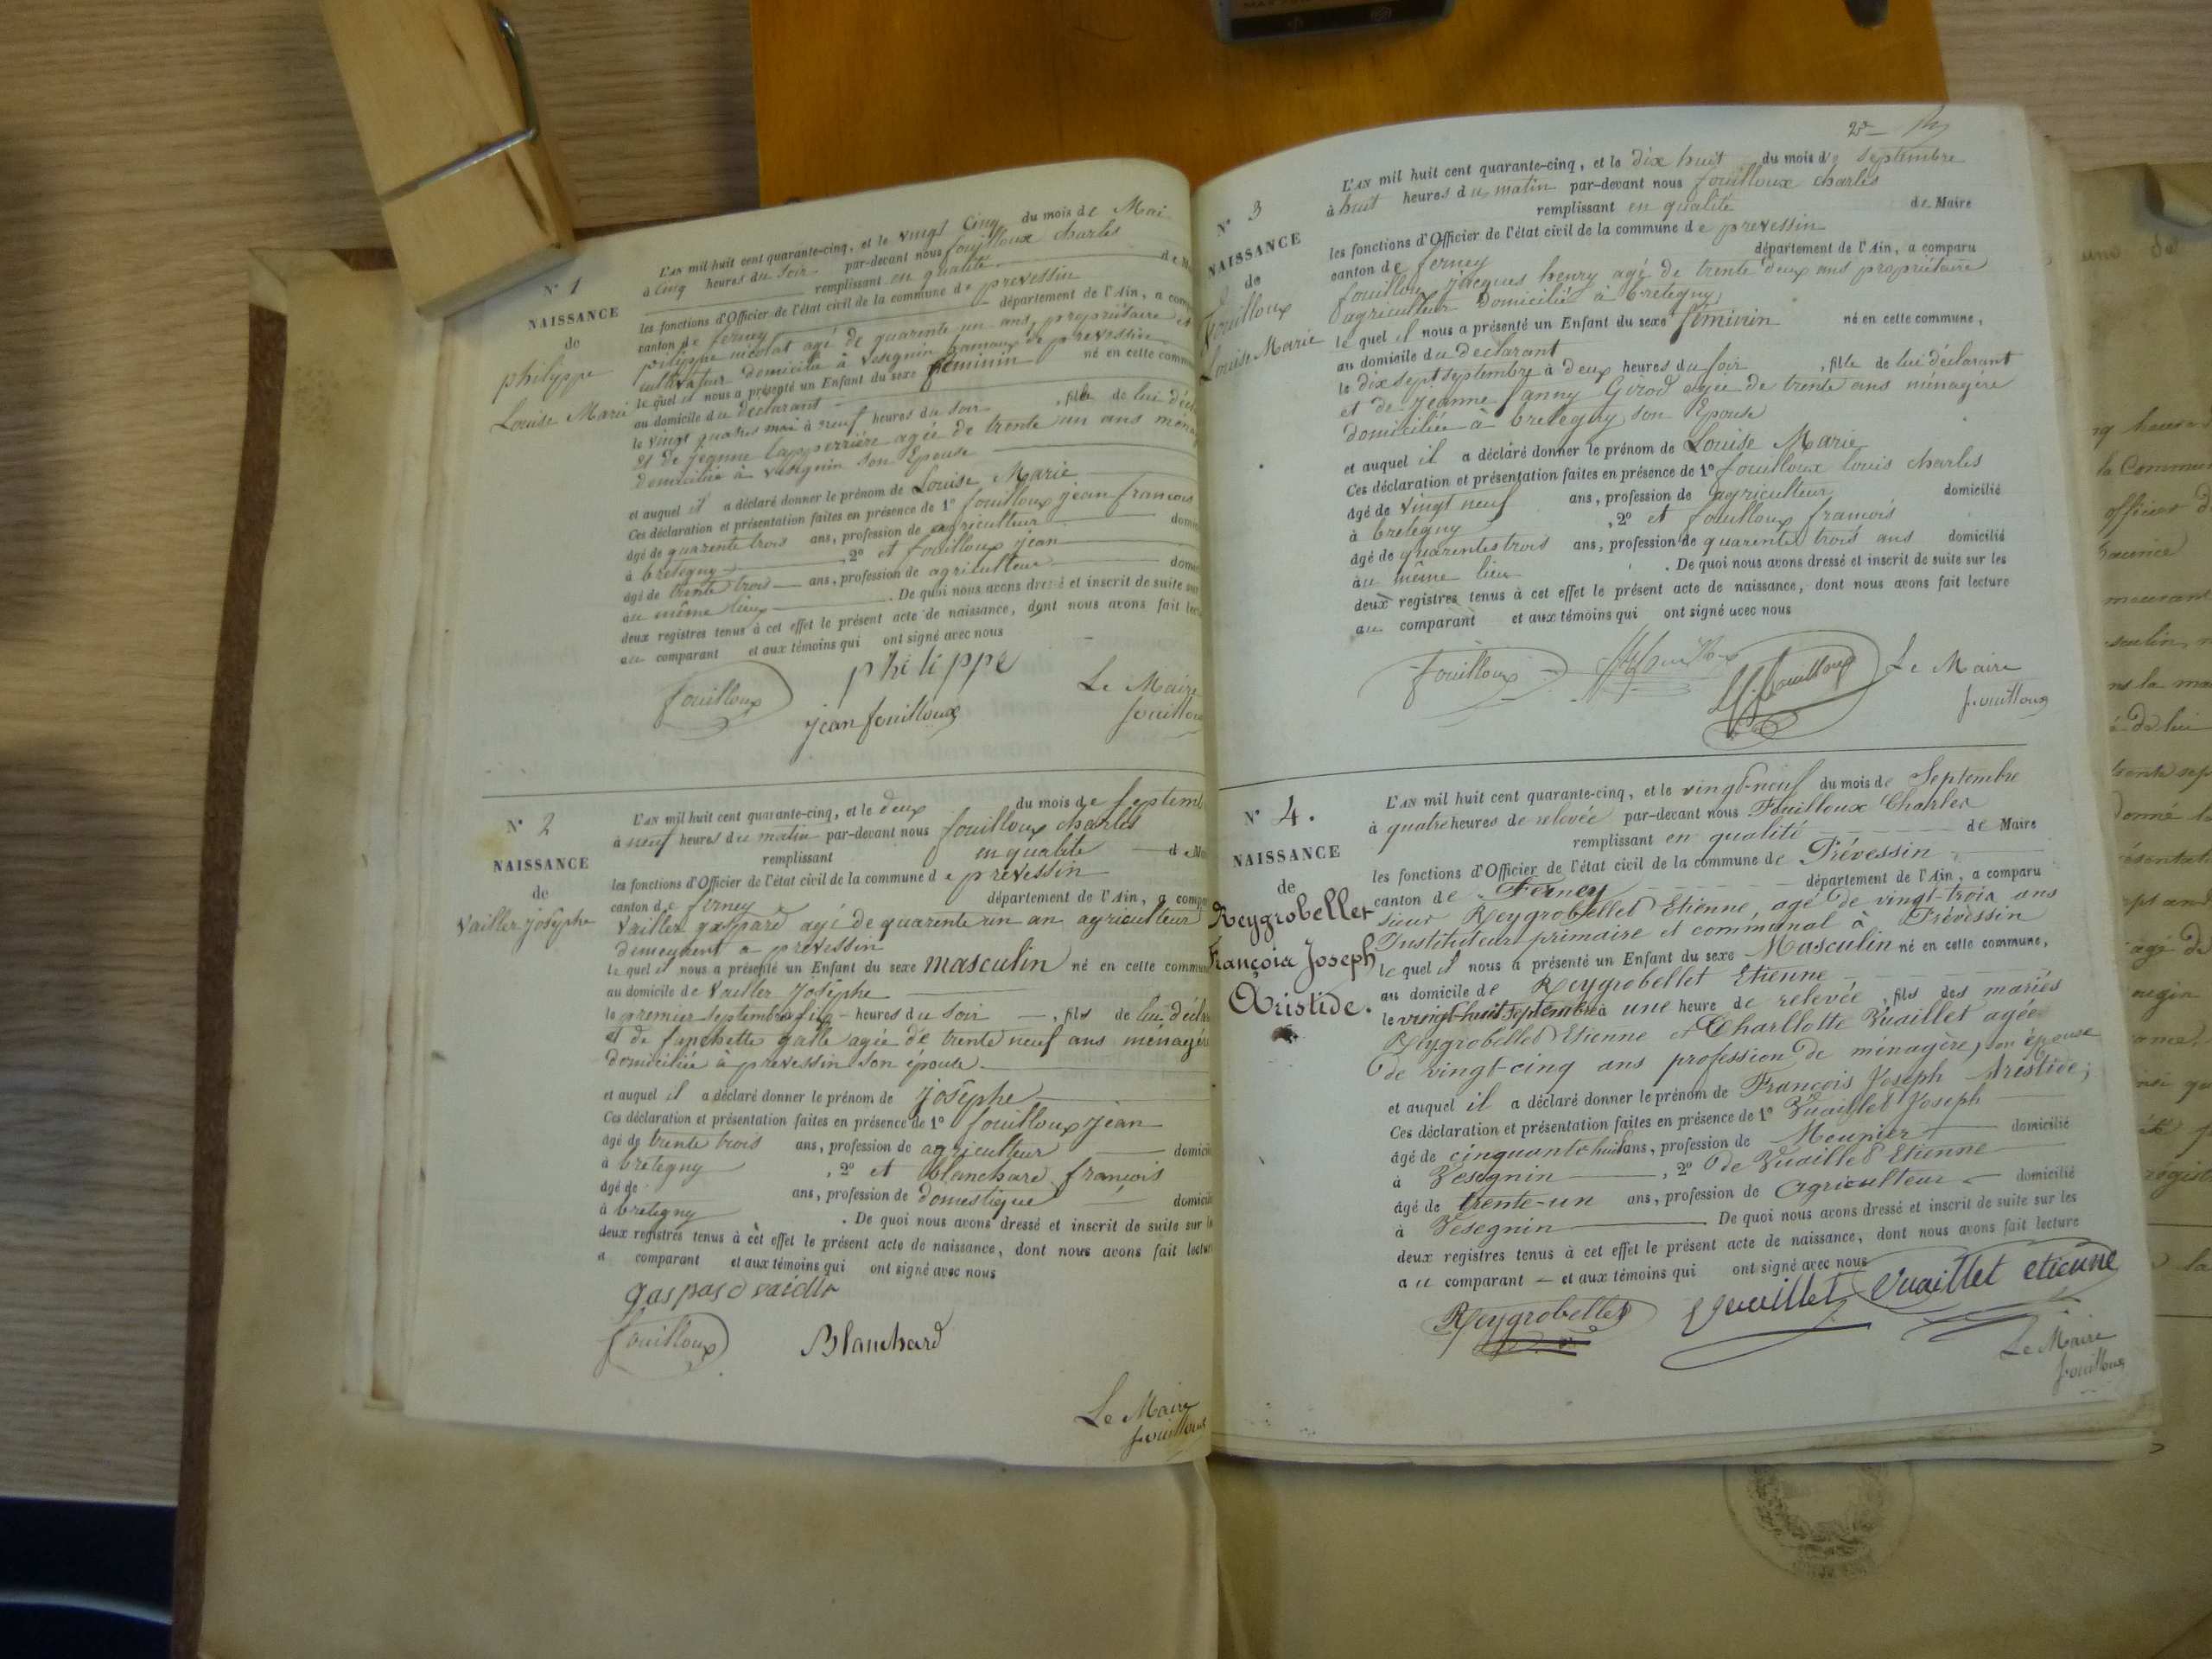 N° 1
NAISSANCE
de
philyppe
Louise Marie
L'AN mil huit cent quarante-cinq, et le vingt Cinq du mois de Mai
à Cinq heures du Soir par-devant nous fouilloux charles
remplissant en qualité de M
les fonctions d'Officier de l'état civil de la commune de prevessin
canton de ferney département de l'Ain, a comp
philippe nicolat agé de quarente un ans, propriétaire et
cultivateur domicilié à Vesegnin hamaux de prevessin
le quel il nous a présenté un Enfant du sexe féminin né en cette commu
au domicile du declarant
le vingt quatre mai à neuf heures du soir , fille de lui décl
et de jeanne lapperrière agée de trente un ans ména
domicilié à Vesegnin son Epouse
et auquel il a déclaré donner le prénom de Louise Marie
Ces déclaration et présentation faites en présence de 1° fouilloux jean francois
âgé de quarente trois ans, profession de agriculteur domi
à bretegny , 2° et fouilloux jean
âgé de trente trois ans, profession de agriculteur domi
au même lieux . De quoi nous avons dressé et inscrit de suite sur
deux registres tenus à cet effet le présent acte de naissance, dont nous avons fait lec
au comparant et aux témoins qui ont signé avec nous
fouilloux philippe
jean fouilloux
Le Maire
fouilloux
N° 2
NAISSANCE
de
Vailler josêphe
L'AN mil huit cent quarante-cinq, et le deux du mois de septemb
à neuf heures du matin par-devant nous fouilloux charles
remplissant en qualité de M
les fonctions d'Officier de l'état civil de la commune de prevessin
canton de ferney département de l'Ain, a comp
Vailler gaspard agé de quarente un an agriculteur
demeurent a prevessin
le quel il nous a présenté un Enfant du sexe masculin né en cette commun
au domicile de Vailler josêphe
le premier septembre heures du soir , fils de lui décla
et de fanchette galle agée de trente neuf ans ménagèr
domiciliée à prevessin son épouse
et auquel il a déclaré donner le prénom de josêphe
Ces déclaration et présentation faites en présence de 1° fouilloux jean
âgé de trente trois ans, profession de agriculteur domici
à bretegny , 2° et blanchard francois
âgé de ans, profession de domestique domici
à bretegny . De quoi nous avons dressé et inscrit de suite sur l
deux registres tenus à cet effet le présent acte de naissance, dont nous avons fait lectu
a comparant et aux témoins qui ont signé avec nous
gaspard vaidlr
fouilloux Blanchard
Le Maire
fouilloux
2e
N° 3
NAISSANCE
de
fouilloux
Louise Marie
L'AN mil huit cent quarante-cinq, et le dix huit du mois de septembre
à huit heures du matin par-devant nous fouilloux charles
remplissant en qualité de Maire
les fonctions d'Officier de l'état civil de la commune de prevessin
canton de ferney département de l'Ain, a comparu
fouilloux jacques henry agé de trente deux ans propriétaire
agriculteur Domicilié à bretegny
le quel il nous a présenté un Enfant du sexe féminin né en cette commune,
au domicile du declarant
le dix sept septembre à deux heures du soir , fille de lui déclarant
et de jeanne fanny Girod agée de trente ans ménagère
domiciliée à bretegny son Epouse
et auquel il a déclaré donner le prénom de Louise Marie
Ces déclaration et présentation faites en présence de 1° fouilloux louis charles
âgé de vingt neuf ans, profession de agriculteur domicilié
à bretegny , 2° et fouilloux francois
âgé de quarentes trois ans, profession de quarente trois ans domicilié
au même lieu . De quoi nous avons dressé et inscrit de suite sur les
deux registres tenus à cet effet le présent acte de naissance, dont nous avons fait lecture
au comparant et aux témoins qui ont signé avec nous
fouilloux fouilloux Le Maire
fouilloux
N° 4.
NAISSANCE
de
Reygrobellet
François Joseph
Aristide.
L'AN mil huit cent quarante-cinq, et le vingt-neuf du mois de Septembre
à quatre heures de relevée par-devant nous Fouilloux Charles
remplissant en qualité de Maire
les fonctions d'Officier de l'état civil de la commune de Prévessin
canton de Ferney département de l'Ain, a comparu
sieur Reygrobellet Etienne, agé de vingt-trois ans
Instituteur primaire et communal à Prévessin
le quel il nous a présenté un Enfant du sexe Masculin né en cette commune,
au domicile de Reygrobellet Etienne
le vingt-huit Septembre à une heure de relevée , fils des mariés
Reygrobellet Etienne et Charllotte Vuaillet agée
de vingt-cinq ans profession de ménagère, son épouse
et auquel il a déclaré donner le prénom de François Joseph Aristide;
Ces déclaration et présentation faites en présence de 1° Vuaillet Joseph
âgé de cinquante huit ans, profession de Meunier domicilié
à Vesegnin , 2° de Vuaillet Etienne
âgé de trente-un ans, profession de Agriculteur domicilié
à Vesegnin De quoi nous avons dressé et inscrit de suite sur les
deux registres tenus à cet effet le présent acte de naissance, dont nous avons fait lecture
au comparant et aux témoins qui ont signé avec nous
Reygrobellet Vuaillet Vuaillet etienne
Le Maire
fouilloux